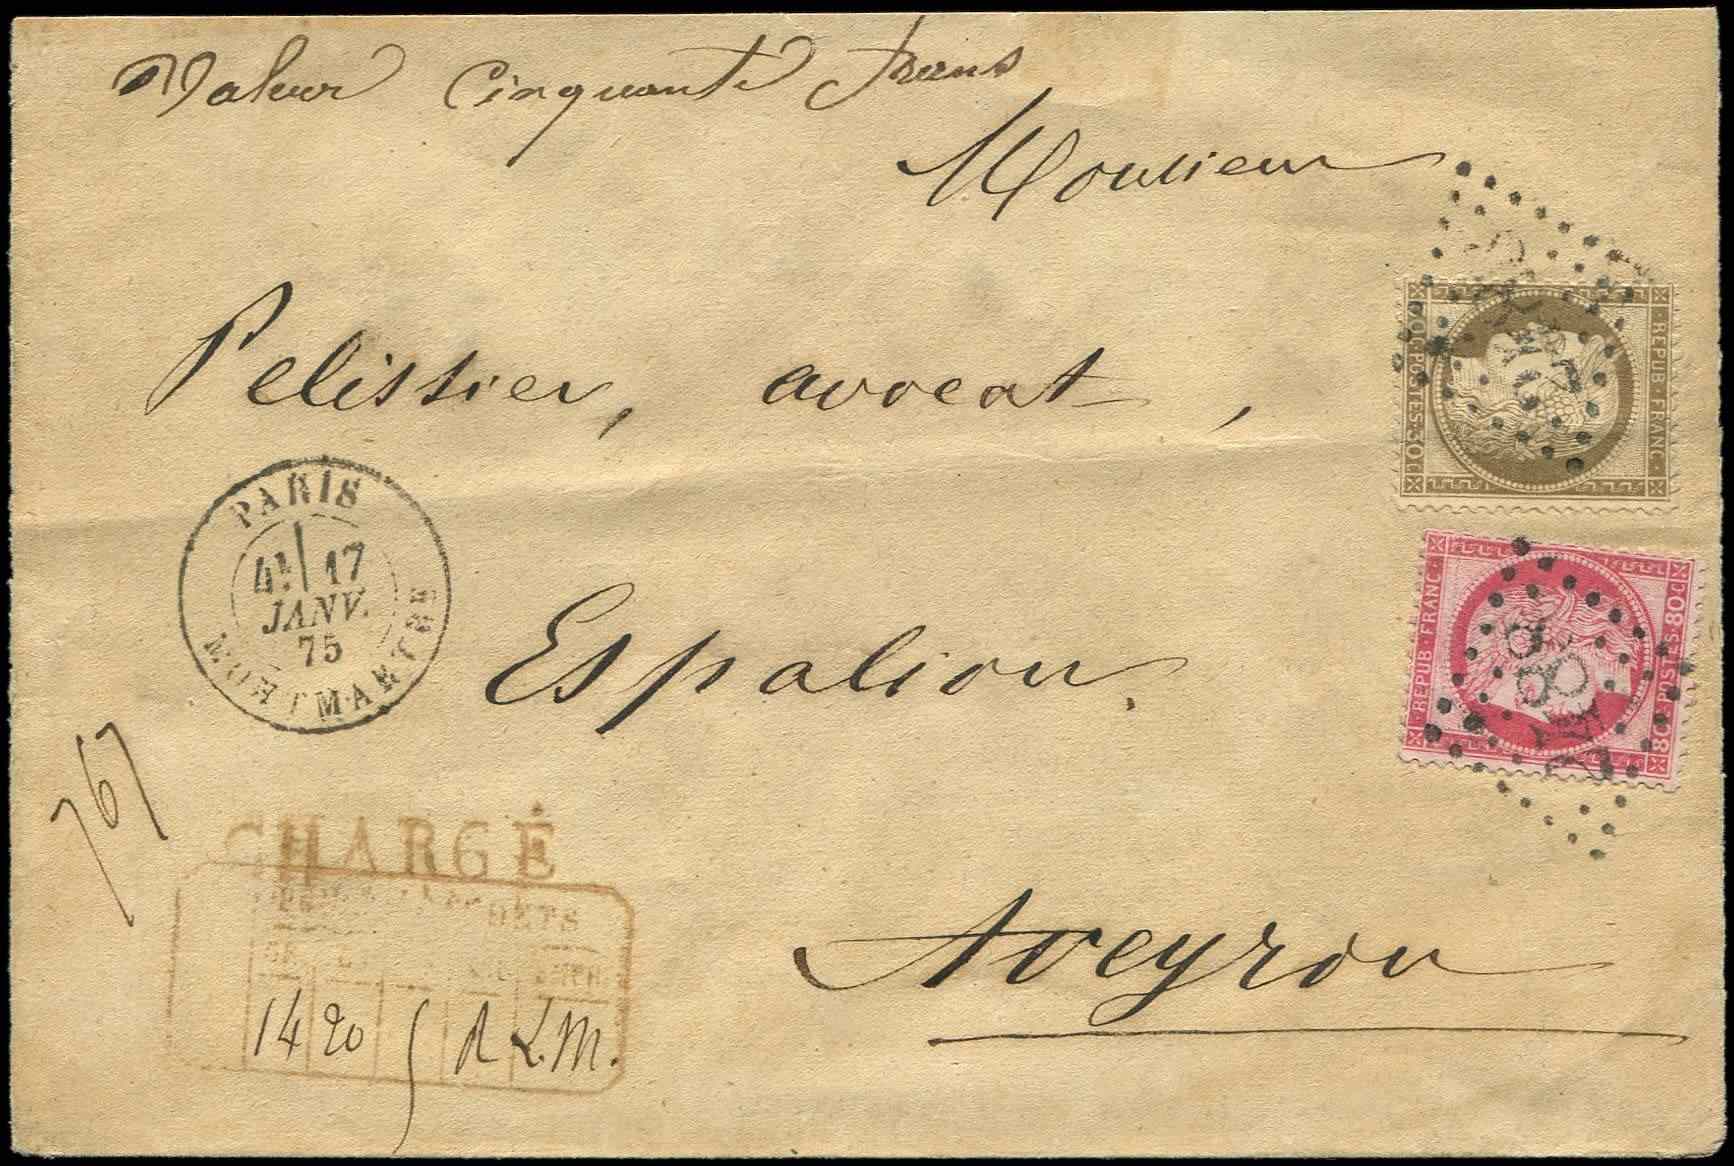 Valeur Cinquante frans
Monsieur
Pelissier, avocat,
REPUB FRANC
30C POSTES 30C
PARIS
4E 17
JANV.
75
MONTMARTRE
REPUB FRANC
80C POSTES 80C
Espalion.
767
CHARGÉ
Aveyron
14 20 5 R L.M.